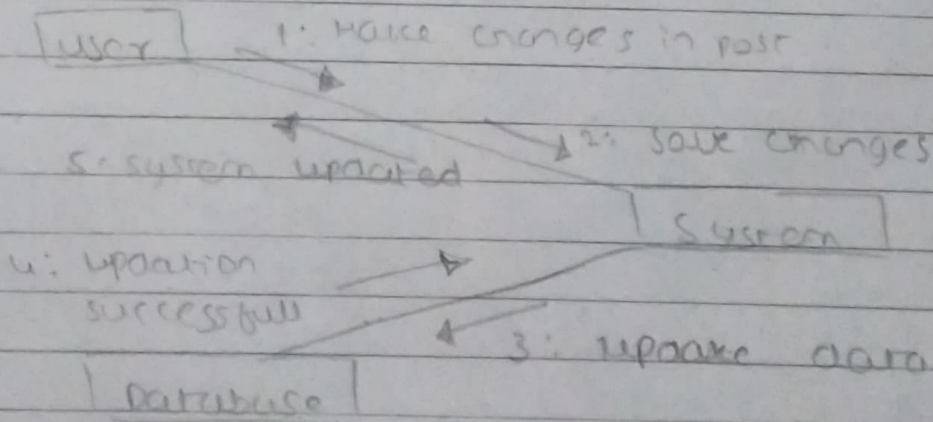 user
1: Make changes in post
2: save changes
5: system updated
System
4: updation
successfull
3: update data
Database